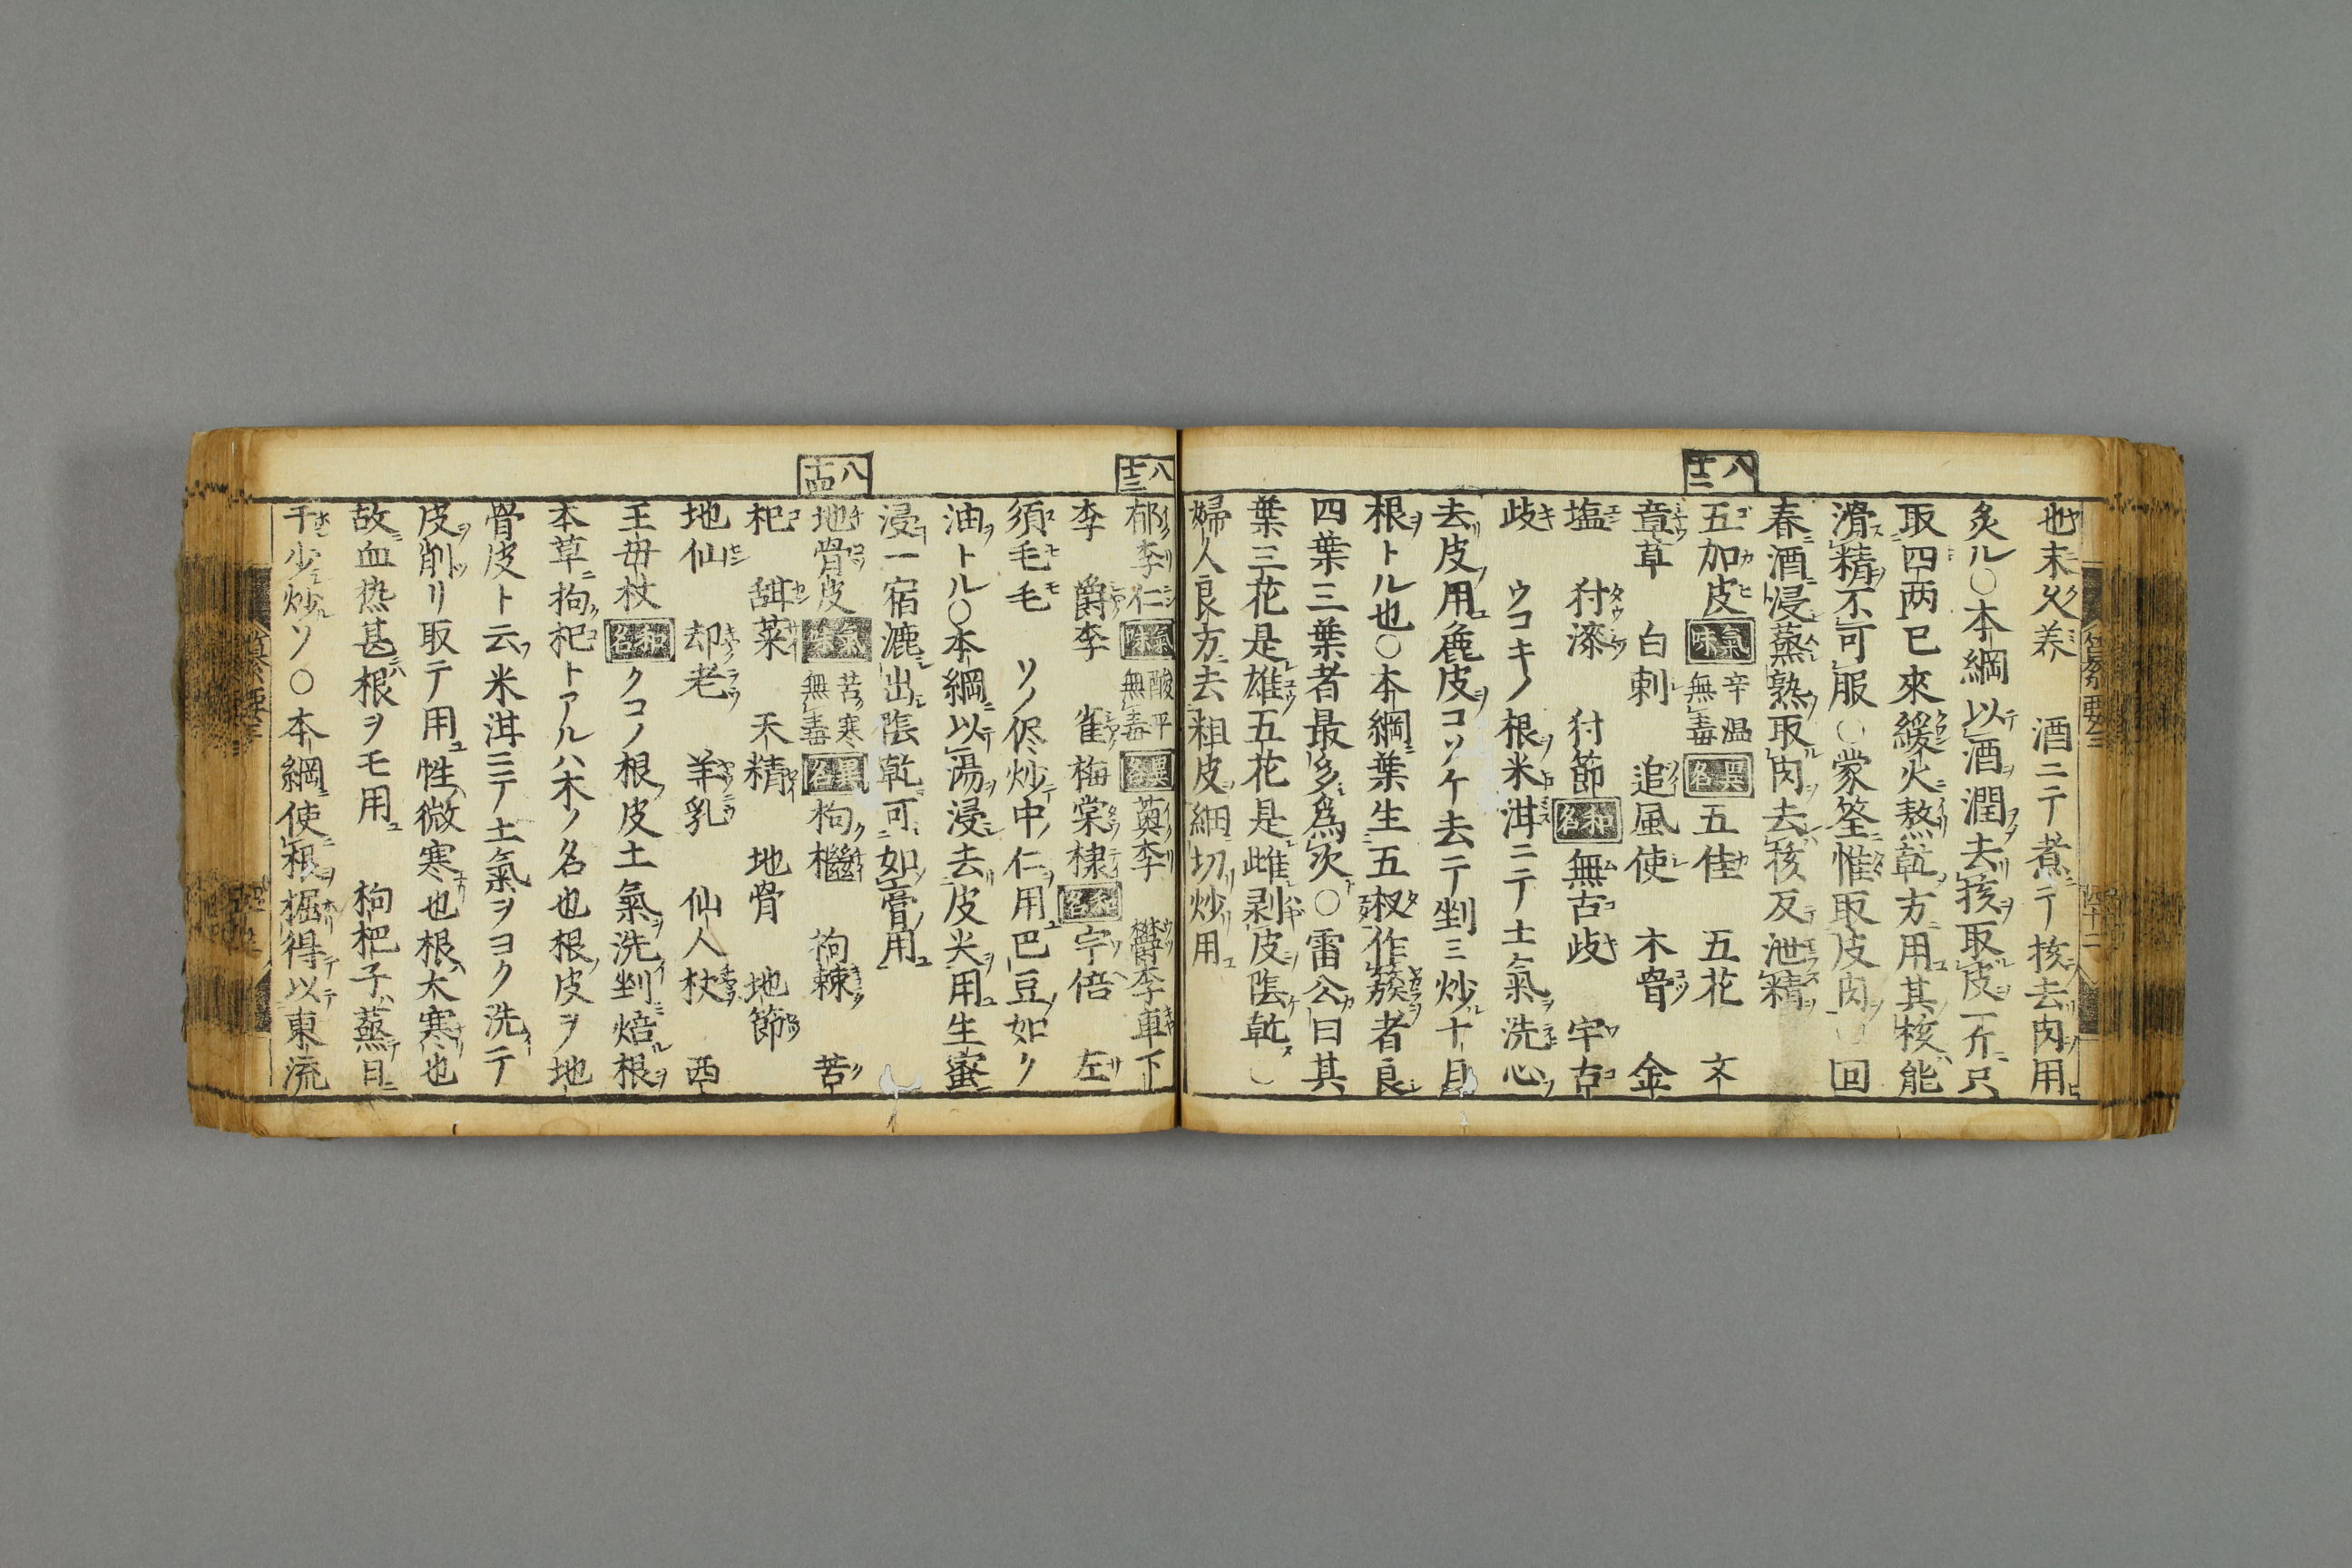 也末久养 酒ニテ煮テ核去肉用
炙ル○本綱以酒潤去核取皮一斤只
取四两已來緩火熬乾方用其核能
滑精不可服○蒙筌惟取皮肉 回
春酒浸蒸熟取肉去核反泄精
八十二
五加皮 氣味 辛温無毒 異名 五佳 五花 文
章草 白刺 追風使 木骨 金
塩 犲漆 犲節 和名 無古歧 宇古
歧 ウコキノ根米泔ニテ土氣洗心
去皮用麁皮コソケ去テ剉ミ炒十月
根トル也○本綱葉生五杈作簇者良
四葉三葉者最多為次○雷公曰其
葉三花是雄五花是雌剥皮陰乾
婦人良方去粗皮細切炒用
八十三
郁李仁 氣味 酸平無毒 異名 薁李 欝李 車下
李 爵李 雀梅 棠棣 和名 宇倍 左
須毛毛 ソノ侭炒中仁用巴豆如ク
油トル○本綱以湯浸去皮尖用生蜜
浸一宿漉出陰乾可如膏用
八十四
地骨皮 氣味 苦寒無毒 異名 枸檵 枸棘 苦
杞 甜菜 天精 地骨 地節
地仙 却老 羊乳 仙人杖 西
王母杖 和名 クコノ根皮土氣洗剉焙根
本草枸杞トアルハ木ノ名也根皮ヲ地
骨皮ト云米泔ニテ土氣ヲヨク洗テ
皮削リ取テ用性微寒也根大寒也
故血热甚根ヲモ用 枸杞子蒸日
干少炒ソ○本綱使根掘得以東流